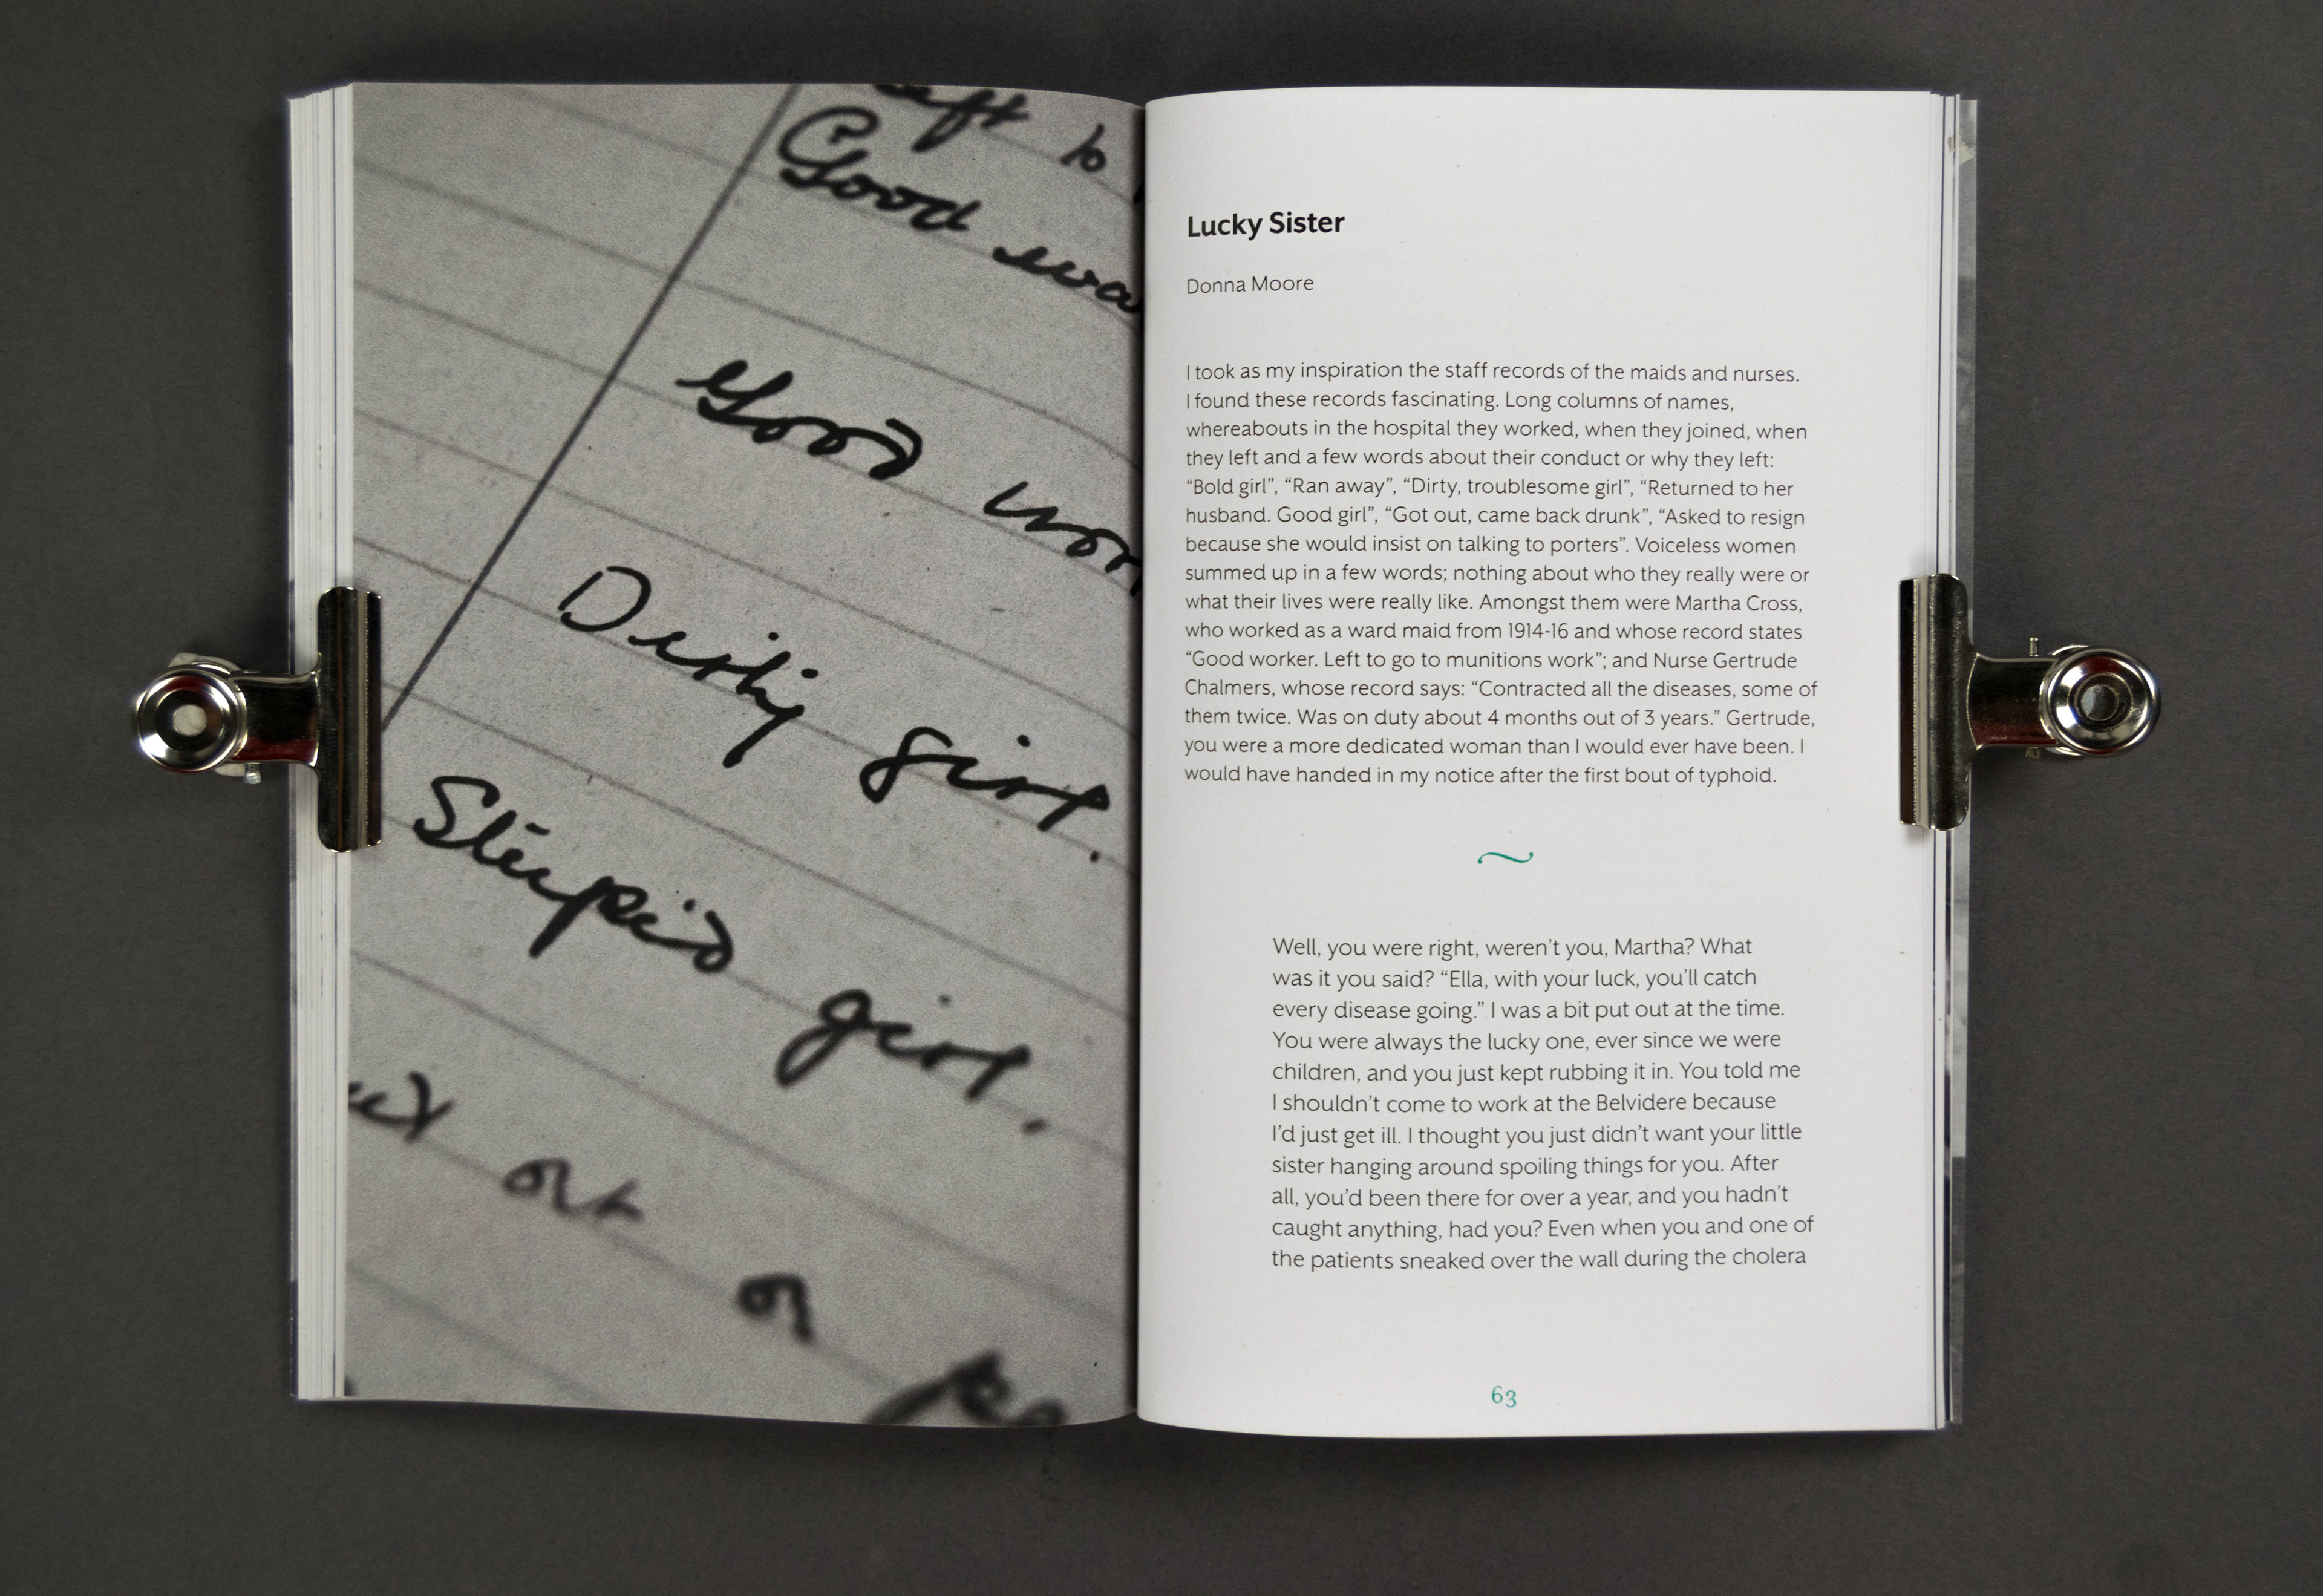 left to
Good wa
Good wor
Dirty girl.
Stupid girl.
out or
Lucky Sister
Donna Moore
I took as my inspiration the staff records of the maids and nurses.
I found these records fascinating. Long columns of names,
whereabouts in the hospital they worked, when they joined, when
they left and a few words about their conduct or why they left:
“Bold girl”, “Ran away”, “Dirty, troublesome girl”, “Returned to her
husband. Good girl”, “Got out, came back drunk”, “Asked to resign
because she would insist on talking to porters”. Voiceless women
summed up in a few words; nothing about who they really were or
what their lives were really like. Amongst them were Martha Cross,
who worked as a ward maid from 1914-16 and whose record states
“Good worker. Left to go to munitions work”; and Nurse Gertrude
Chalmers, whose record says: “Contracted all the diseases, some of
them twice. Was on duty about 4 months out of 3 years.” Gertrude,
you were a more dedicated woman than I would ever have been. I
would have handed in my notice after the first bout of typhoid.
Well, you were right, weren’t you, Martha? What
was it you said? “Ella, with your luck, you’ll catch
every disease going.” I was a bit put out at the time.
You were always the lucky one, ever since we were
children, and you just kept rubbing it in. You told me
I shouldn’t come to work at the Belvidere because
I’d just get ill. I thought you just didn’t want your little
sister hanging around spoiling things for you. After
all, you’d been there for over a year, and you hadn’t
caught anything, had you? Even when you and one of
the patients sneaked over the wall during the cholera
63